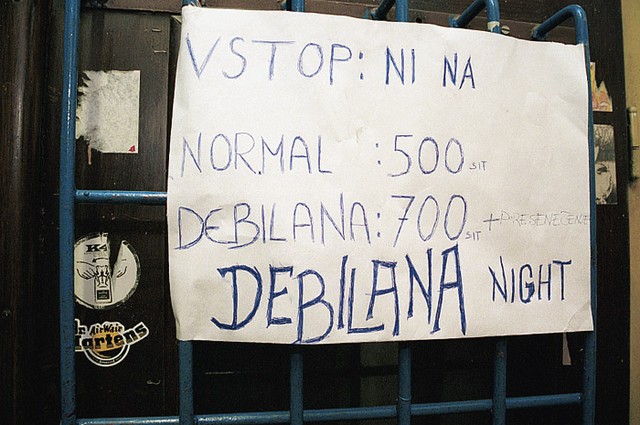 VSTOP: NI NA
NORMAL : 500 SIT
DEBILANA: 700 SIT + PRESENEČENJE
DEBILANA NIGHT
K4
AirWair
Martens